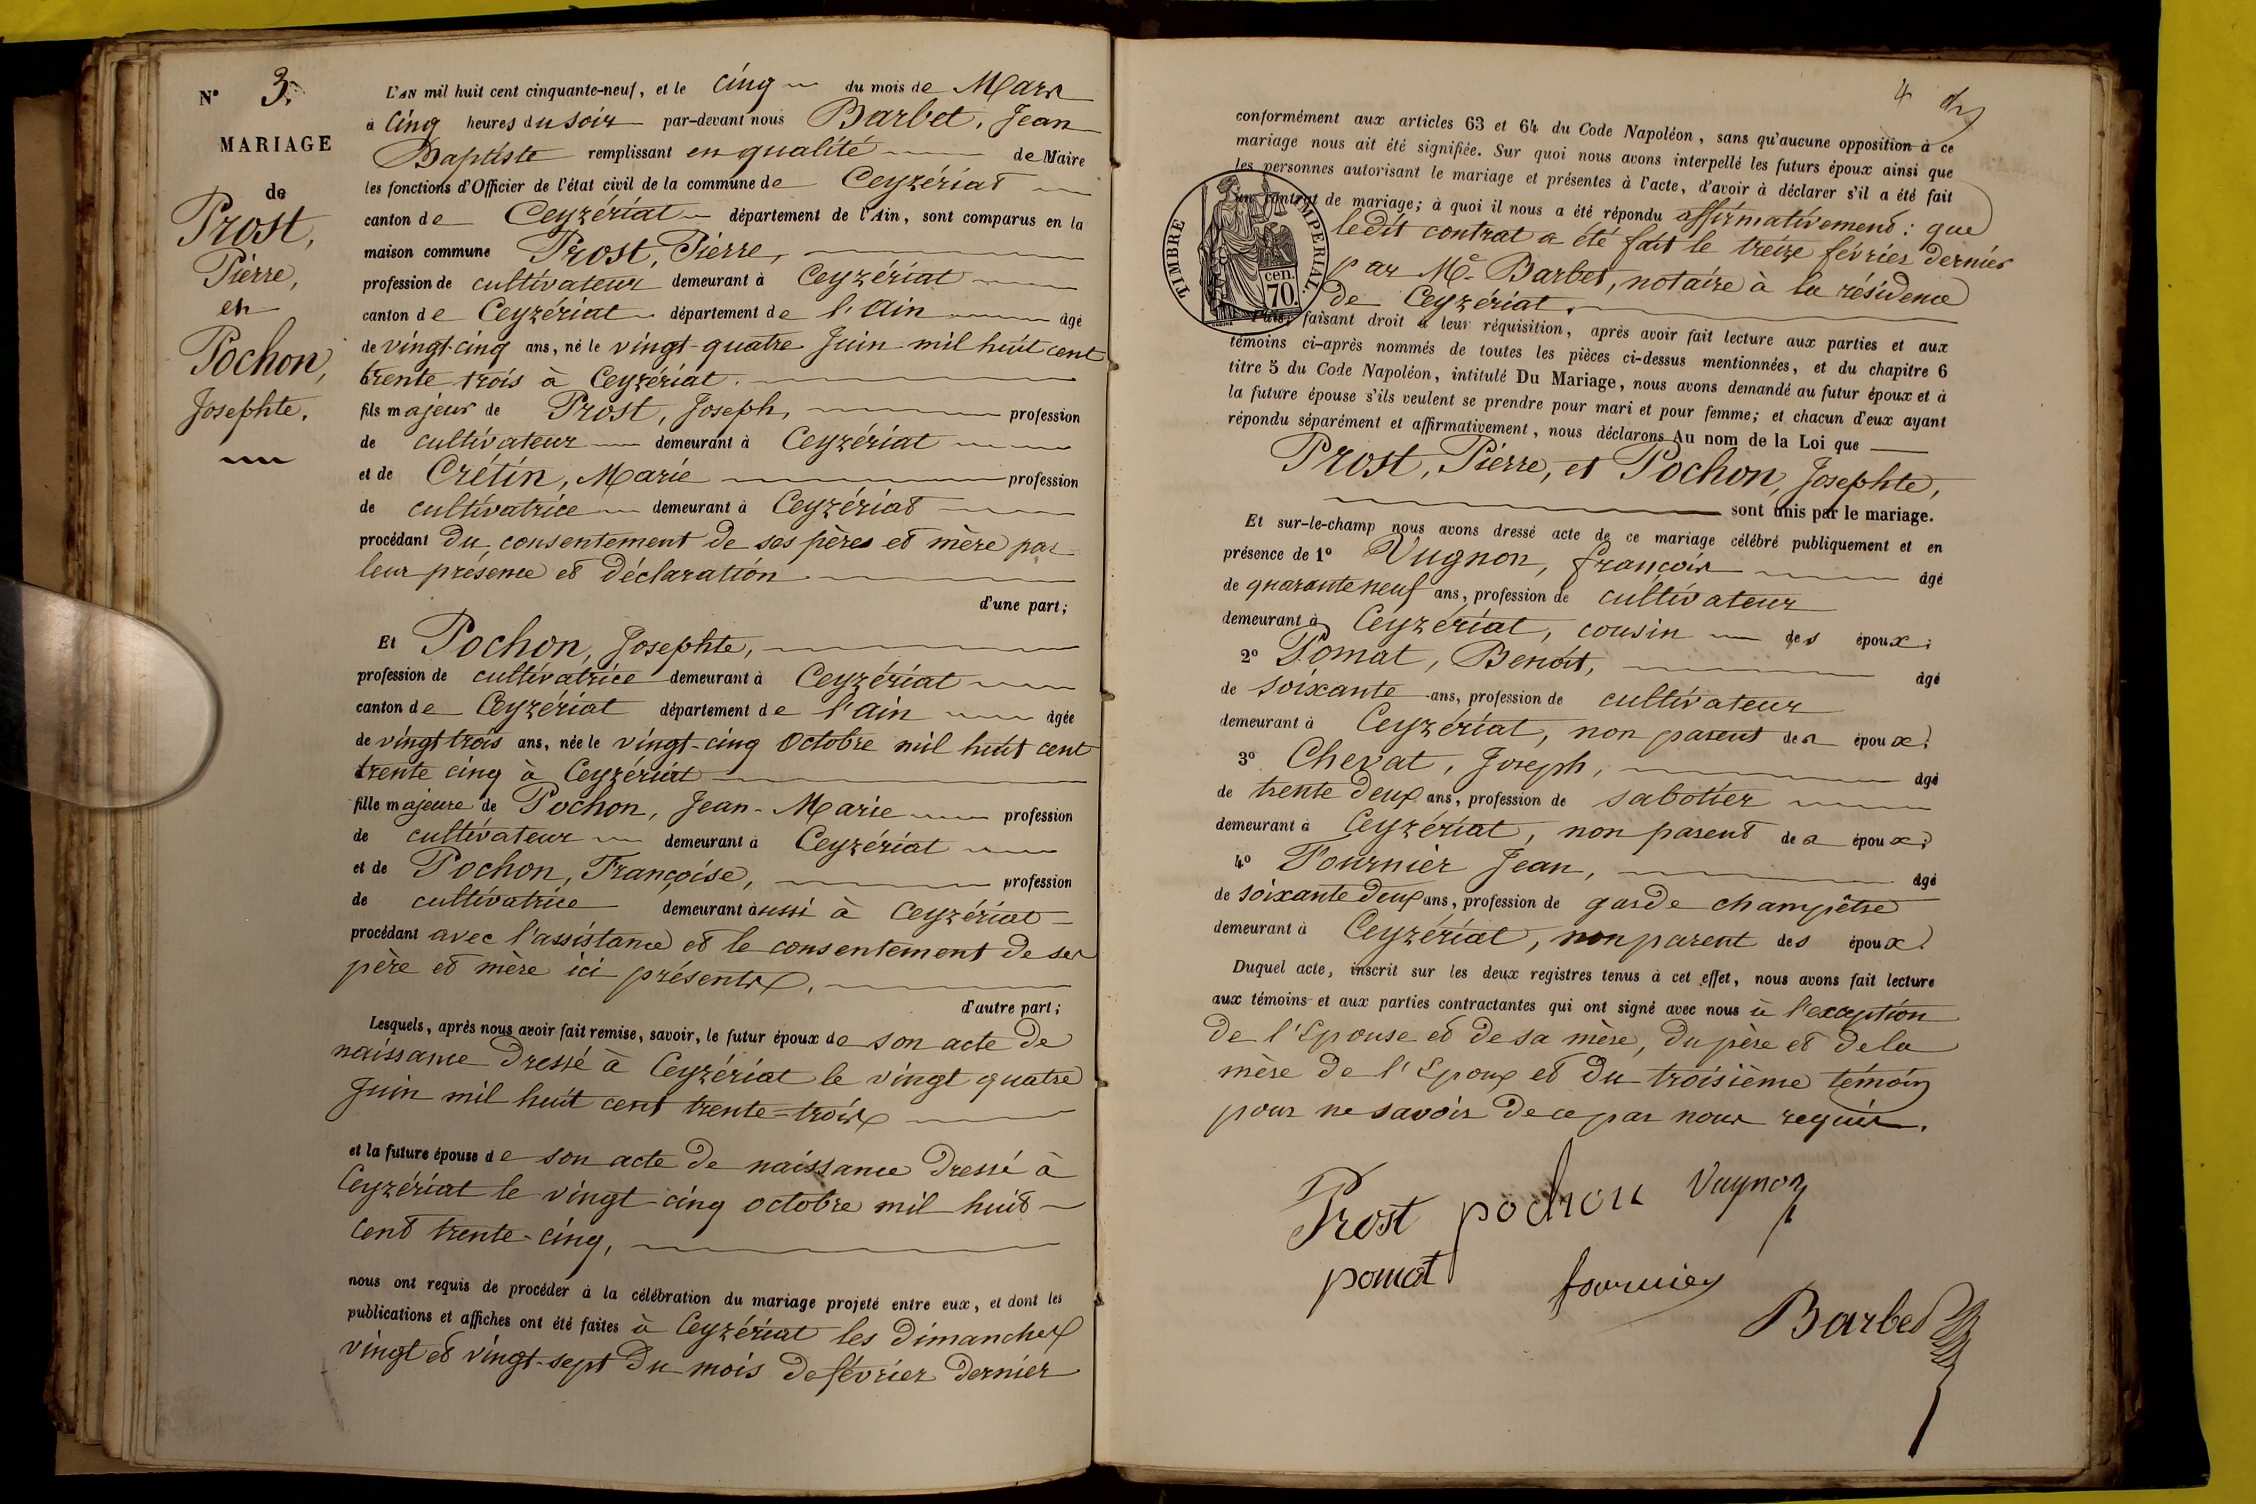 N° 3.
MARIAGE
de
Prost,
Pierre,
et
Pochon,
Josephte.
L'AN mil huit cent cinquante-neuf, et le cinq du mois de Mars
à cinq heures du soir par-devant nous Barbet, Jean
Baptiste remplissant en qualité de Maire
les fonctions d'Officier de l'état civil de la commune de Ceyzériat
canton de Ceyzériat département de l'Ain, sont comparus en la
maison commune Prost, Pierre,
profession de cultivateur demeurant à Ceyzériat
canton de Ceyzériat département de l'ain âgé
de vingt-cinq ans, né le vingt-quatre Juin mil huit cent
trente trois à Ceyzériat.
fils majeur de Prost, Joseph, profession
de cultivateur demeurant à Ceyzériat
et de Crétin, Marie profession
de cultivatrice demeurant à Ceyzériat
procédant du consentement de ses pères et mère par
leur présence et déclaration
d'une part;
Et Pochon, Josephte,
profession de cultivatrice demeurant à Ceyzériat
canton de Ceyzériat département de l'ain âgée
de vingt trois ans, née le vingt-cinq Octobre mil huit cent
trente cinq à Ceyzériat
fille majeure de Pochon, Jean-Marie profession
de cultivateur demeurant à Ceyzériat
et de Pochon, Françoise, profession
de cultivatrice demeurant aussi à Ceyzériat
procédant avec l'assistance et le consentement de ses
père et mère ici présents.
d'autre part;
Lesquels, après nous avoir fait remise, savoir, le futur époux de son acte de
naissance dressé à Ceyzériat le vingt quatre
Juin mil huit cent trente-trois
et la future épouse de son acte de naissance dressé à
Ceyzériat le vingt-cinq octobre mil huit
cent trente-cinq,
nous ont requis de procéder à la célébration du mariage projeté entre eux, et dont les
publications et affiches ont été faites à Ceyzériat les dimanches
vingt et vingt-sept du mois de février dernier
4
conformément aux articles 63 et 64 du Code Napoléon, sans qu'aucune opposition à ce
mariage nous ait été signifiée. Sur quoi nous avons interpellé les futurs époux ainsi que
les personnes autorisant le mariage et présentes à l'acte, d'avoir à déclarer s'il a été fait
un contrat de mariage; à quoi il nous a été répondu affirmativement: que
ledit contrat a été fait le treize février dernier
par Me. Barbet, notaire à la résidence
de Ceyzériat.
TIMBRE IMPERIAL.
cen.
70.
Puis, faisant droit à leur réquisition, après avoir fait lecture aux parties et aux
témoins ci-après nommés de toutes les pièces ci-dessus mentionnées, et du chapitre 6
titre 5 du Code Napoléon, intitulé Du Mariage, nous avons demandé au futur époux et à
la future épouse s'ils veulent se prendre pour mari et pour femme; et chacun d'eux ayant
répondu séparément et affirmativement, nous déclarons Au nom de la Loi que
Prost, Pierre, et Pochon, Josephte,
sont unis par le mariage.
Et sur-le-champ nous avons dressé acte de ce mariage célébré publiquement et en
présence de 1° Vugnon, françois âgé
de quarante neuf ans, profession de cultivateur
demeurant à Ceyzériat, cousin des époux;
2° Pomat, Benoît, âgé
de soixante ans, profession de cultivateur
demeurant à Ceyzériat, non parent des époux;
3° Chevat, Joseph, âgé
de trente deux ans, profession de sabotier
demeurant à Ceyzériat, non parent des époux;
4° Fournier Jean, âgé
de soixante deux ans, profession de garde champêtre
demeurant à Ceyzériat, non parent des époux.
Duquel acte, inscrit sur les deux registres tenus à cet effet, nous avons fait lecture
aux témoins et aux parties contractantes qui ont signé avec nous à l'exception
de l'Epouse et de sa mère, du père et de la
mère de l'Epoux et du troisième témoin
pour ne savoir de ce par nous requis.
Prost pochon Vugnon
pomat fournier
Barbet